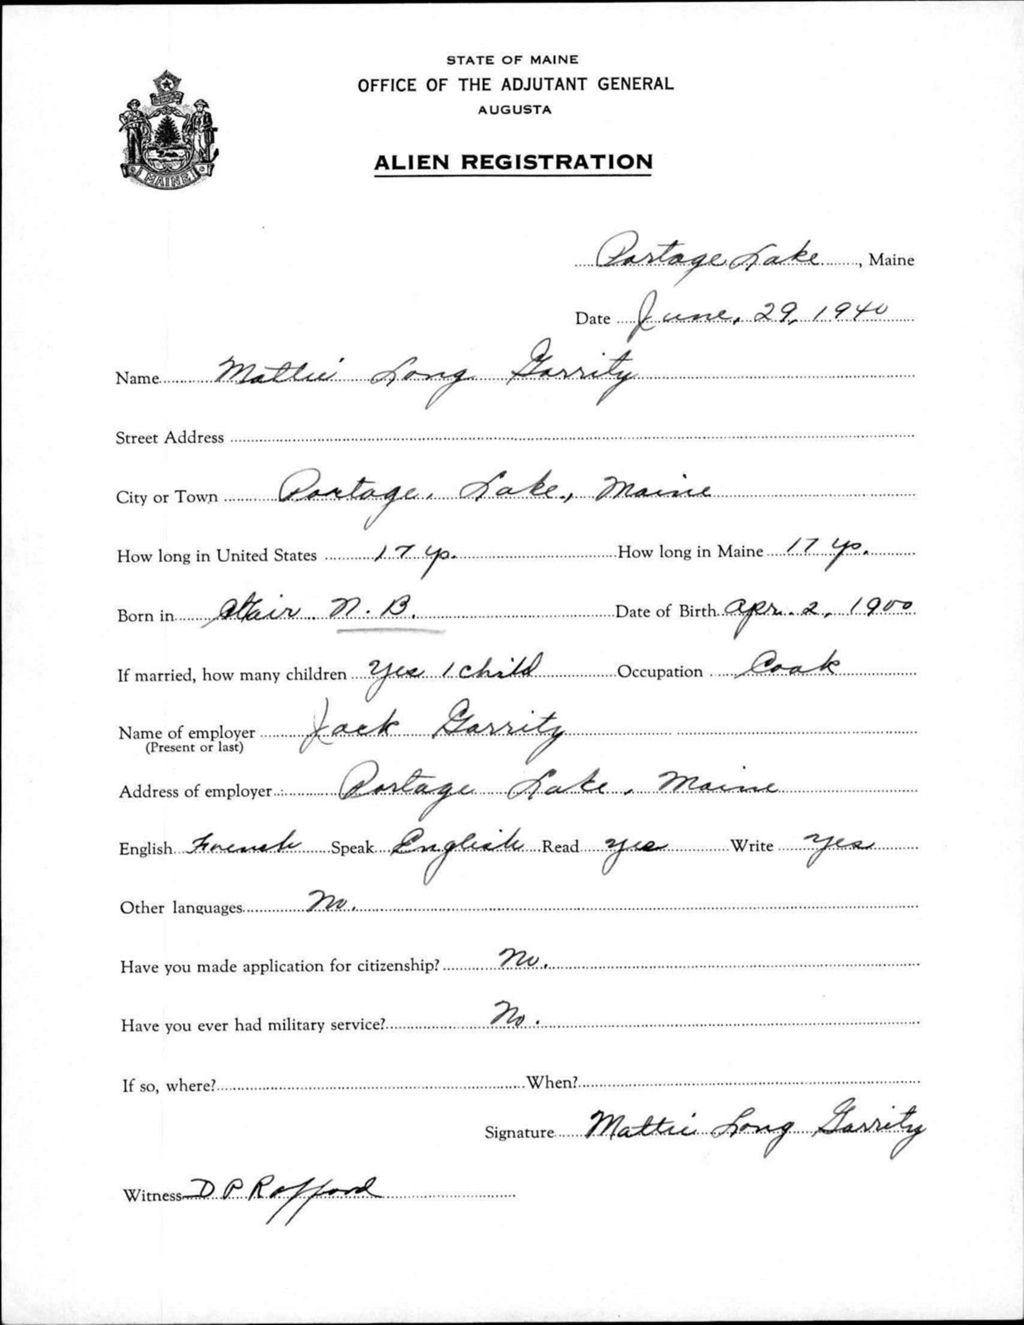 STATE OF MAINE
OFFICE OF THE ADJUTANT GENERAL
AUGUSTA
ALIEN REGISTRATION
MAINE
Portage Lake, Maine
Date June, 29, 1940
Name Mattie Long Garrity
Street Address
City or Town Portage, Lake, Maine
How long in United States 17 yr. How long in Maine 17 yr.
Born in N. B. Date of Birth Apr. 2, 1900
If married, how many children Yes 1 child Occupation Cook
Name of employer Jack Garrity
(Present or last)
Address of employer Portage Lake, Maine
English French Speak English Read yes Write yes
Other languages No.
Have you made application for citizenship? No.
Have you ever had military service? No.
If so, where? When?
Signature Mattie Long Garrity
Witness D P Rafford